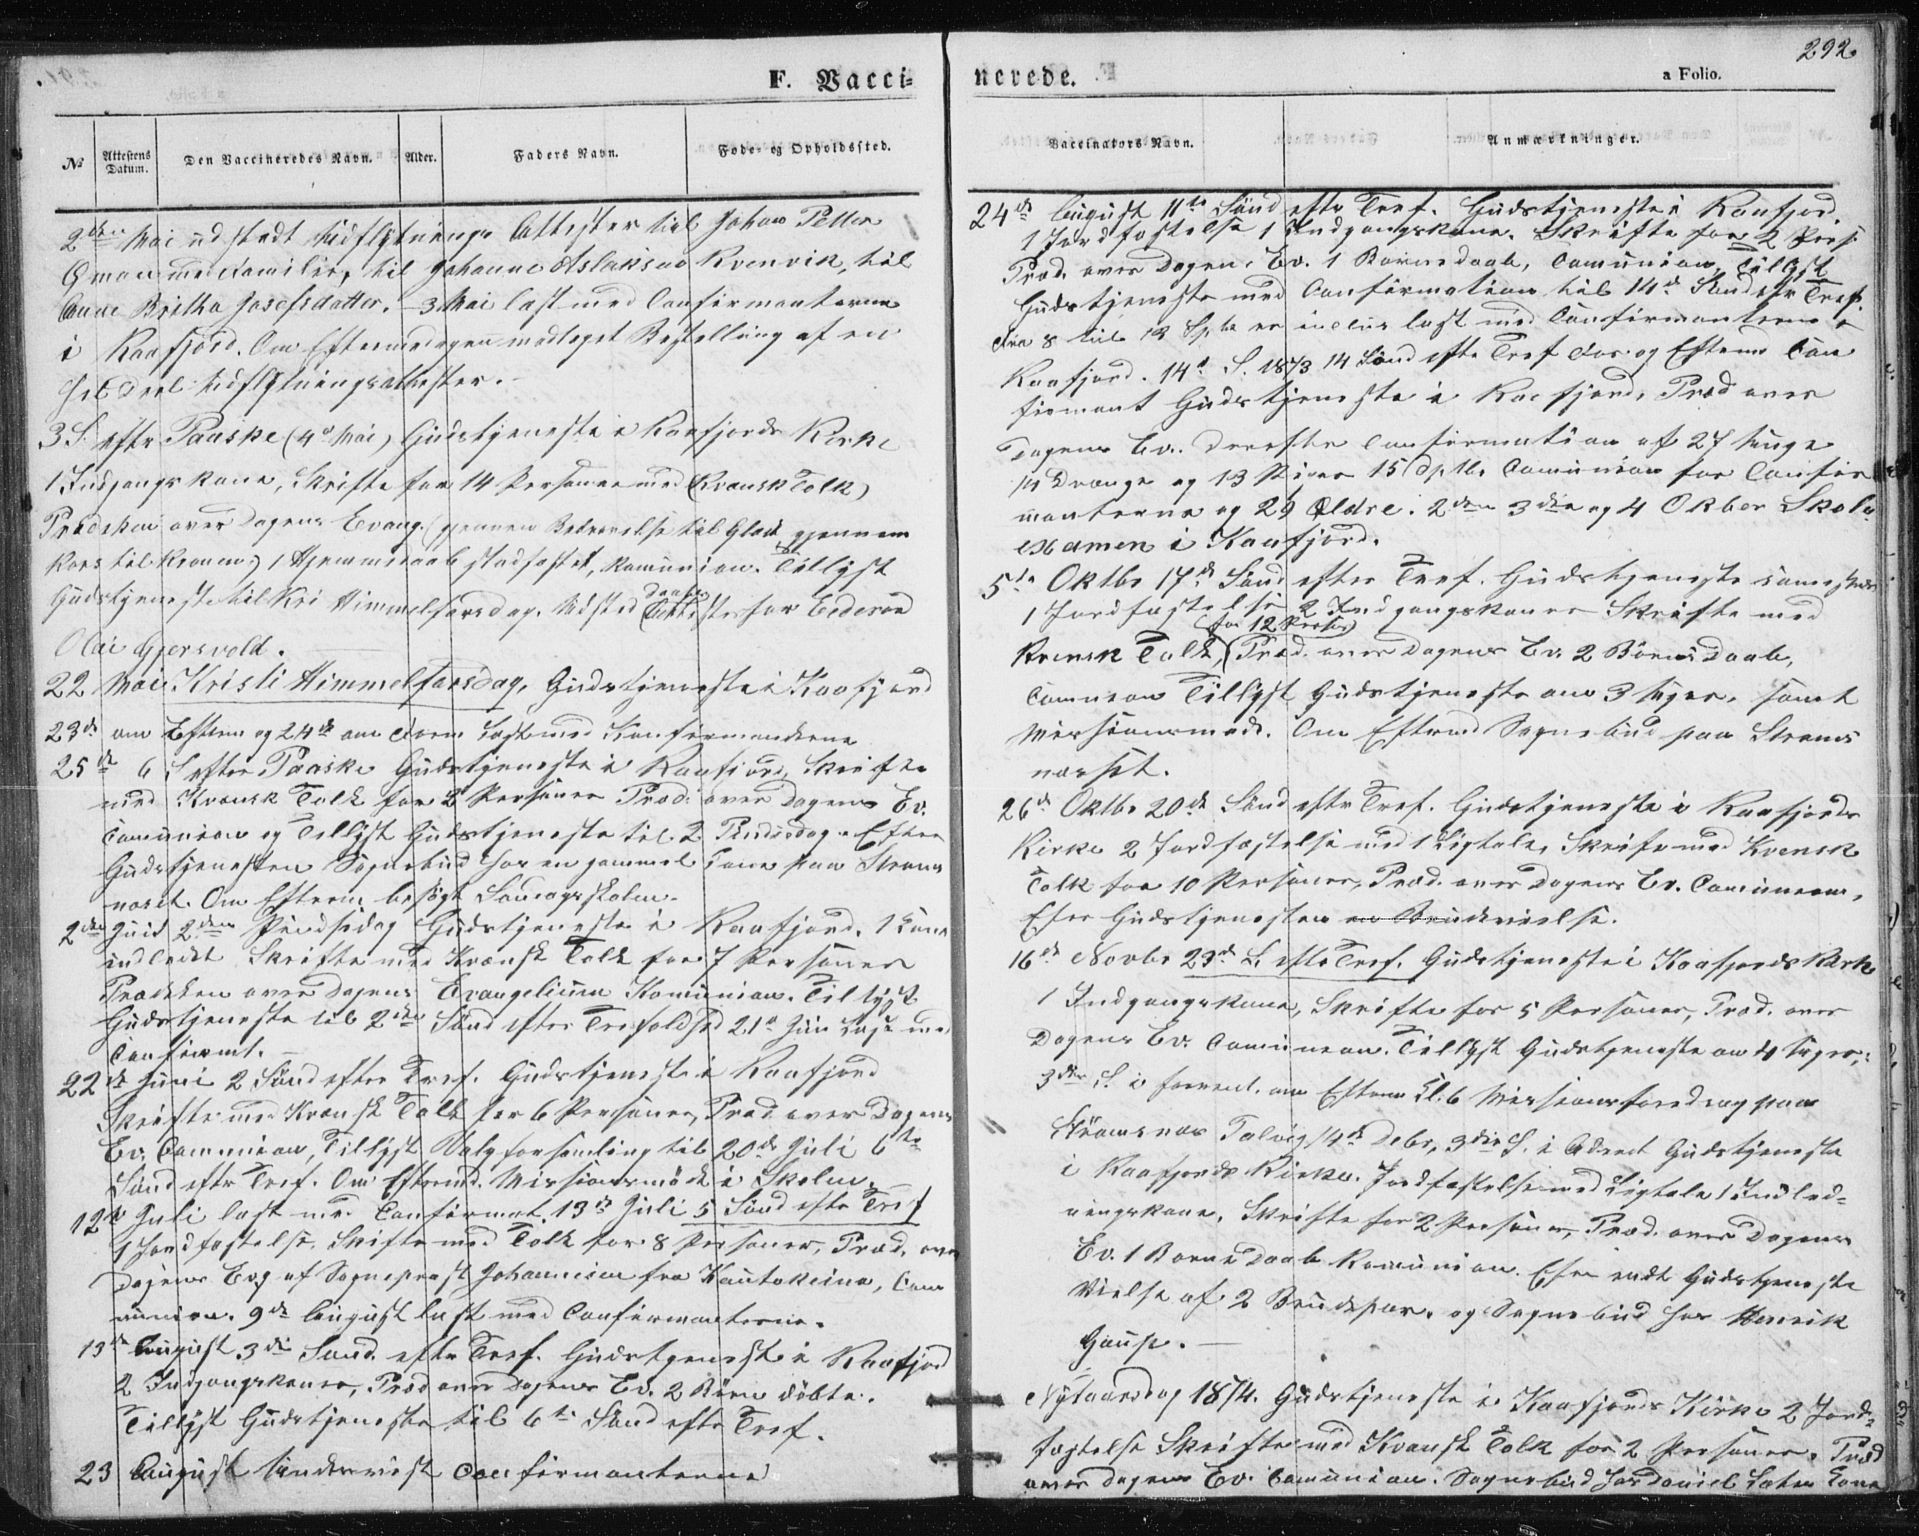 292.
F. Vacci=
nerede.
a Folio.
No
Attestens Datum.
Den Vaccineredes Navn.
Alder.
Faders Navn.
Føde- og Opholdssted.
Vaccinators Navn.
Anmærkninger.
2den Mai udstedt Udflytnings Attester til Johan Petter
med Familie, til Johanne Aslaksen Kvenvik, til
Anne Britha Josefsdatter. 3 Mai læst med Confirmanterne
i Kaafjord. Om Eftermedagen modtaget Bestilling af en
heel Deel Udflytningsattester.
3 S. efter Paaske (4de Mai) Gudstjeneste i Kaafjords Kirke
1 Indgangskone, Skrifte for 14 Personer med (Kvænsk Tolk)
Prædiken over Dagens Evang. (gjennem Bedrøvelse til Glæde gjennem
Kors til Kronen) 1 Hjemmedaab stadfæstet, Komunion. Tillyst
Gudstjeneste til Kri Himmelfartsdag. Udsted Daabs Attester for
Olai Gjersvold.
22 Mai Kristi Himmelfartsdag. Gudstjeneste i Kaafjord
23de om Efterm og 24de om Form læst med Konfirmanderne
25de 6 S efter Paaske Gudstjeneste i Kaafjord, Skrifte
med Kvænsk Tolk for 2 Personer Præd. over Dagens Ev.
Comunion og Tillyst Gudstjeneste til 2 Pindsedag. Efter
Gudstjenesten Sognebud hos en gammel Kone paa Strøms
næset. Om Efterm. besøgt Søndagsskolen.
2den Juni 2den Pindsedag Gudstjeneste i Kaafjord. 1 Kone
indledt Skrifte med Kvænsk Tolk for 7 Personer
Prædiken over Dagens Evangelium Komunion. Tillyst
Gudstjeneste til 2den Sønd efter Trefoldhed 21de Juni Læst med
Confirmt.
22de Juni 2 Sønd efter Tref. Gudstjeneste i Kaafjord
Skrifte med Kvænsk Tolk for 6 Personer, Præd over Dagens
Ev. Communion, Tillyst Valgforsamling til 20de Juli 6te
Sønd efter Tref. Om Eftermd. Missionsmøde i Skolen.
12te Juli læst med Confirmat. 13de Juli 5 Sønd efter Tref
1 Jordfæstelse. Skifte med Tolk for 8 Personer, Præd. over
Dagens Evg af Sognepræst Johannesen fra Kautokeino, Com
munion. 9de August læst med Confirmanterne.
August Sønd. efter Tref. Gudstjeneste i Kaafjord
2 Indgangskoner, Præd over Dagens Ev. 2 Børn døbte.
Tillyst Gudstjeneste til Sønd efter Tref.
23 August Undervist Confirmanterne
24de August 11te Sønd efter Tref. Gudstjeneste i Kaafjord.
1 Jordfæstelse 1 Indgangskone. Skrifte for 2 Pers
Præd. over Dagen. Ev. 1 Barnedaab, Comunion, Tillyst
Gudstjeneste med Confirmation til 14de Sønd eft Tref.
Fra 8 til 13 Spbr er læst med Confirmanterne
Kaafjord. 14de S. 1873 14 Sønd efter Tref For og Efterm Con
firmant Gudstjeneste i Kaafjord, Præd over
Dagens Ev. Derefter Confirmation af 27 Unge
14 Drenge og 13 Piger 15 Comunion for Confir
manterne og 29 Ældre. 2den 3die og 4 Oktber Skole
examen i Kaafjord.
5te Oktbr 17de Sønd efter Tref. Gudstjeneste
1 Jordfæstelse 2 Indgangskoner Skrifte med
(for 12 Person)
Kvensk Tolk, Præd. over Dagens Ev. 2 Børns Daab,
Comunion Tillyst Gudstjeneste om 3 Uger, samt
Missionsmøde. Om Efterm Sognebud paa Strøms
næset.
26de Oktbr 20de Sønd efter Tref. Gudstjeneste i Kaafjords
Kirke 2 Jordfæstelse med 1 Ligtale, Skrifte med Kvensk
Tolk for 10 Personer, Præd. over Dagens Ev. Comunion,
Efter Gudstjenesten en Brudevielse.
16de Novbr 23de S. efter Tref. Gudstjeneste i Kaafjords Kirke
1 Indgangskone, Skrifte for 5 Personer, Præd. over
Dagens Ev. Comunion. Tillyst Gudstjeneste om 4 Uger,
3die S. i Advent. om Efterm Kl. 6 Missionsforedrag paa
Strømsnæs Talvig, 14de Debr, 3die S. i Advent Gudstjeneste
i Kaafjords Kirke. Jordfæstelse med Ligtale 1 Indled=
ningskone, Skrifte for 2 Personer, Præd. over Dagens
Ev. 1 Barne Daab Komunion. Efter endt Gudstjeneste
Vielse af 2 Brudepar, og Sognebud hos Henrik
Gaup.
Nytaarsdag 1874. Gudstjeneste i Kaafjords Kirke 2 Jord=
fæstelse Skrifte med Kvænsk Tolk for 2 Personer. Præd
over Dagens Ev. Comunion. Sognebud hos Daniel Kone